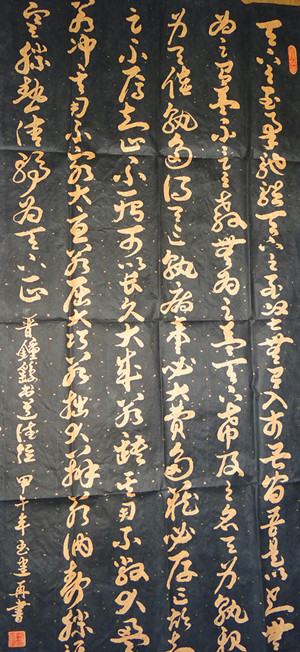 天下之至柔馳騁天下之至堅無有入於無間吾是以知無
為之有益不言之教無為之益天下希及之名與身孰親
身與貨孰多得與亡孰病甚愛必大費多藏必厚亡故知
足不辱知止不殆可以長久大成若缺其用不敝大盈
若沖其用不窮大直若屈大巧若拙大辯若訥躁勝
寒靜勝熱清靜為天下正
道德經
甲午年
書